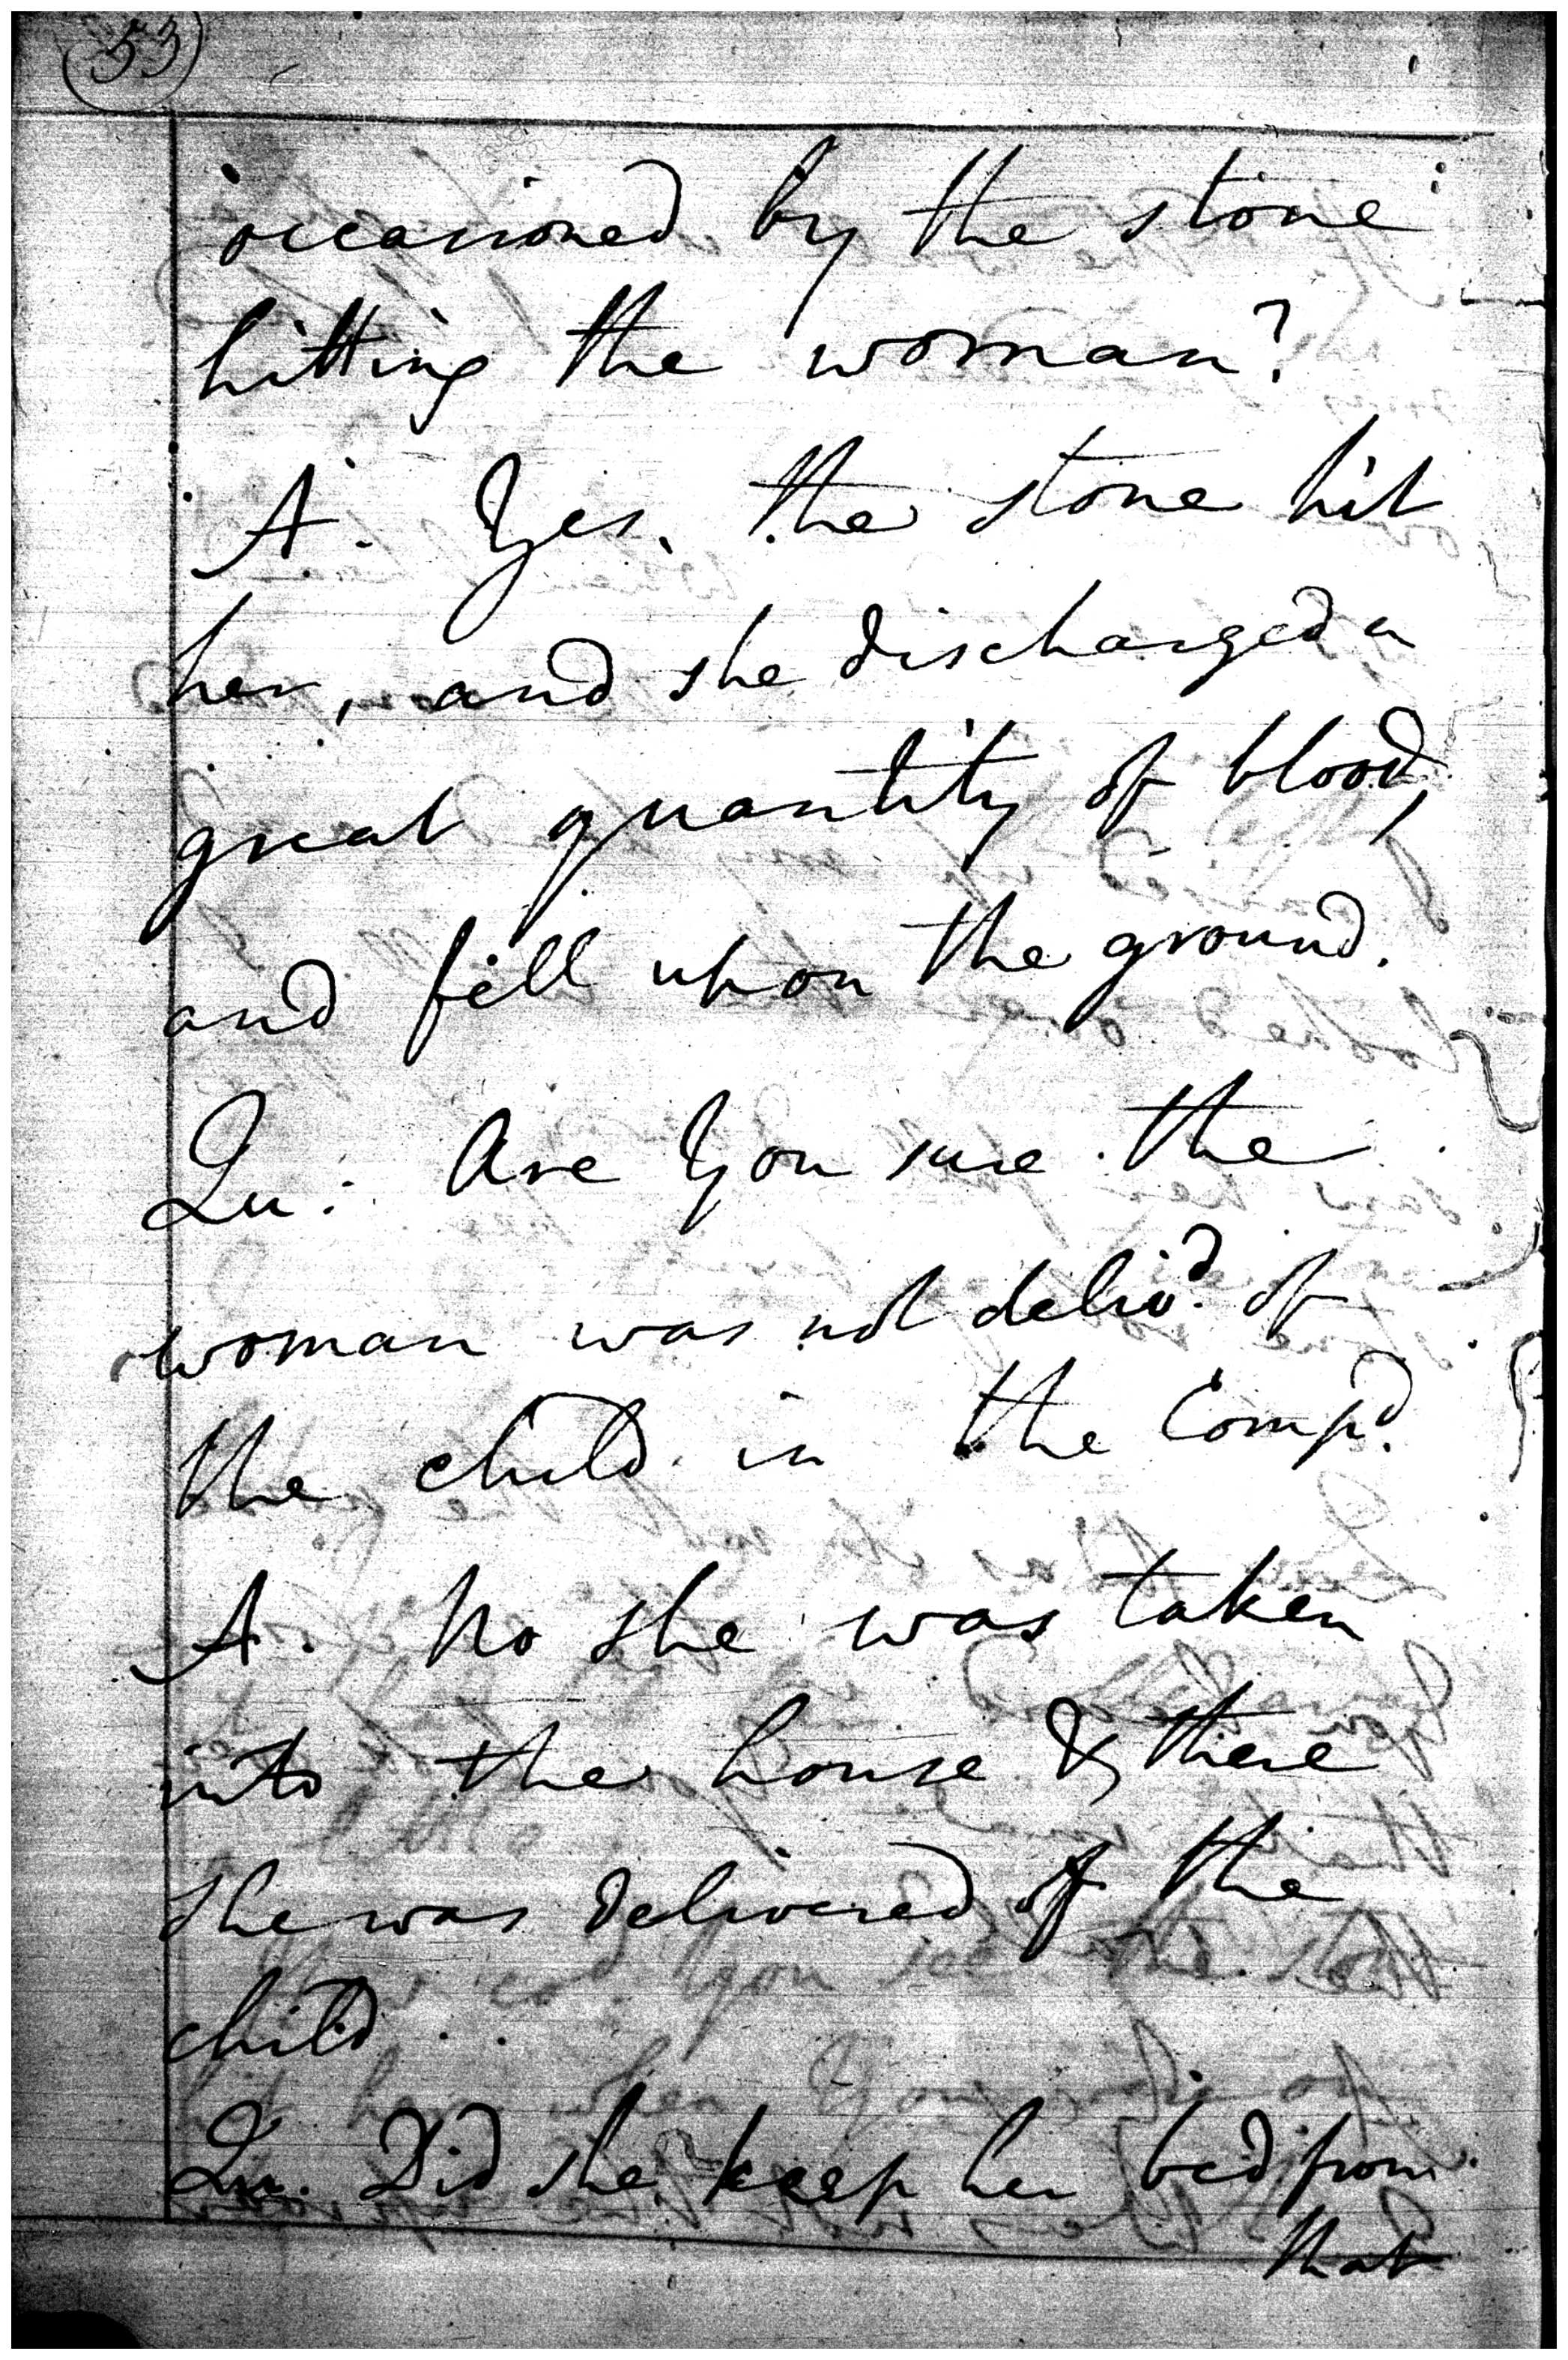 53
occasioned by the stone
hitting the woman?
A. Yes, the stone hit
her, and she discharged a
great quantity of blood,
and fell upon the ground.
Qu: Are You sure the
woman was not delivd. of
the child in the Compd.
A. No she was taken
into the house & there
she was delivered of the
child..
Qu. Did she keep her bed from
that